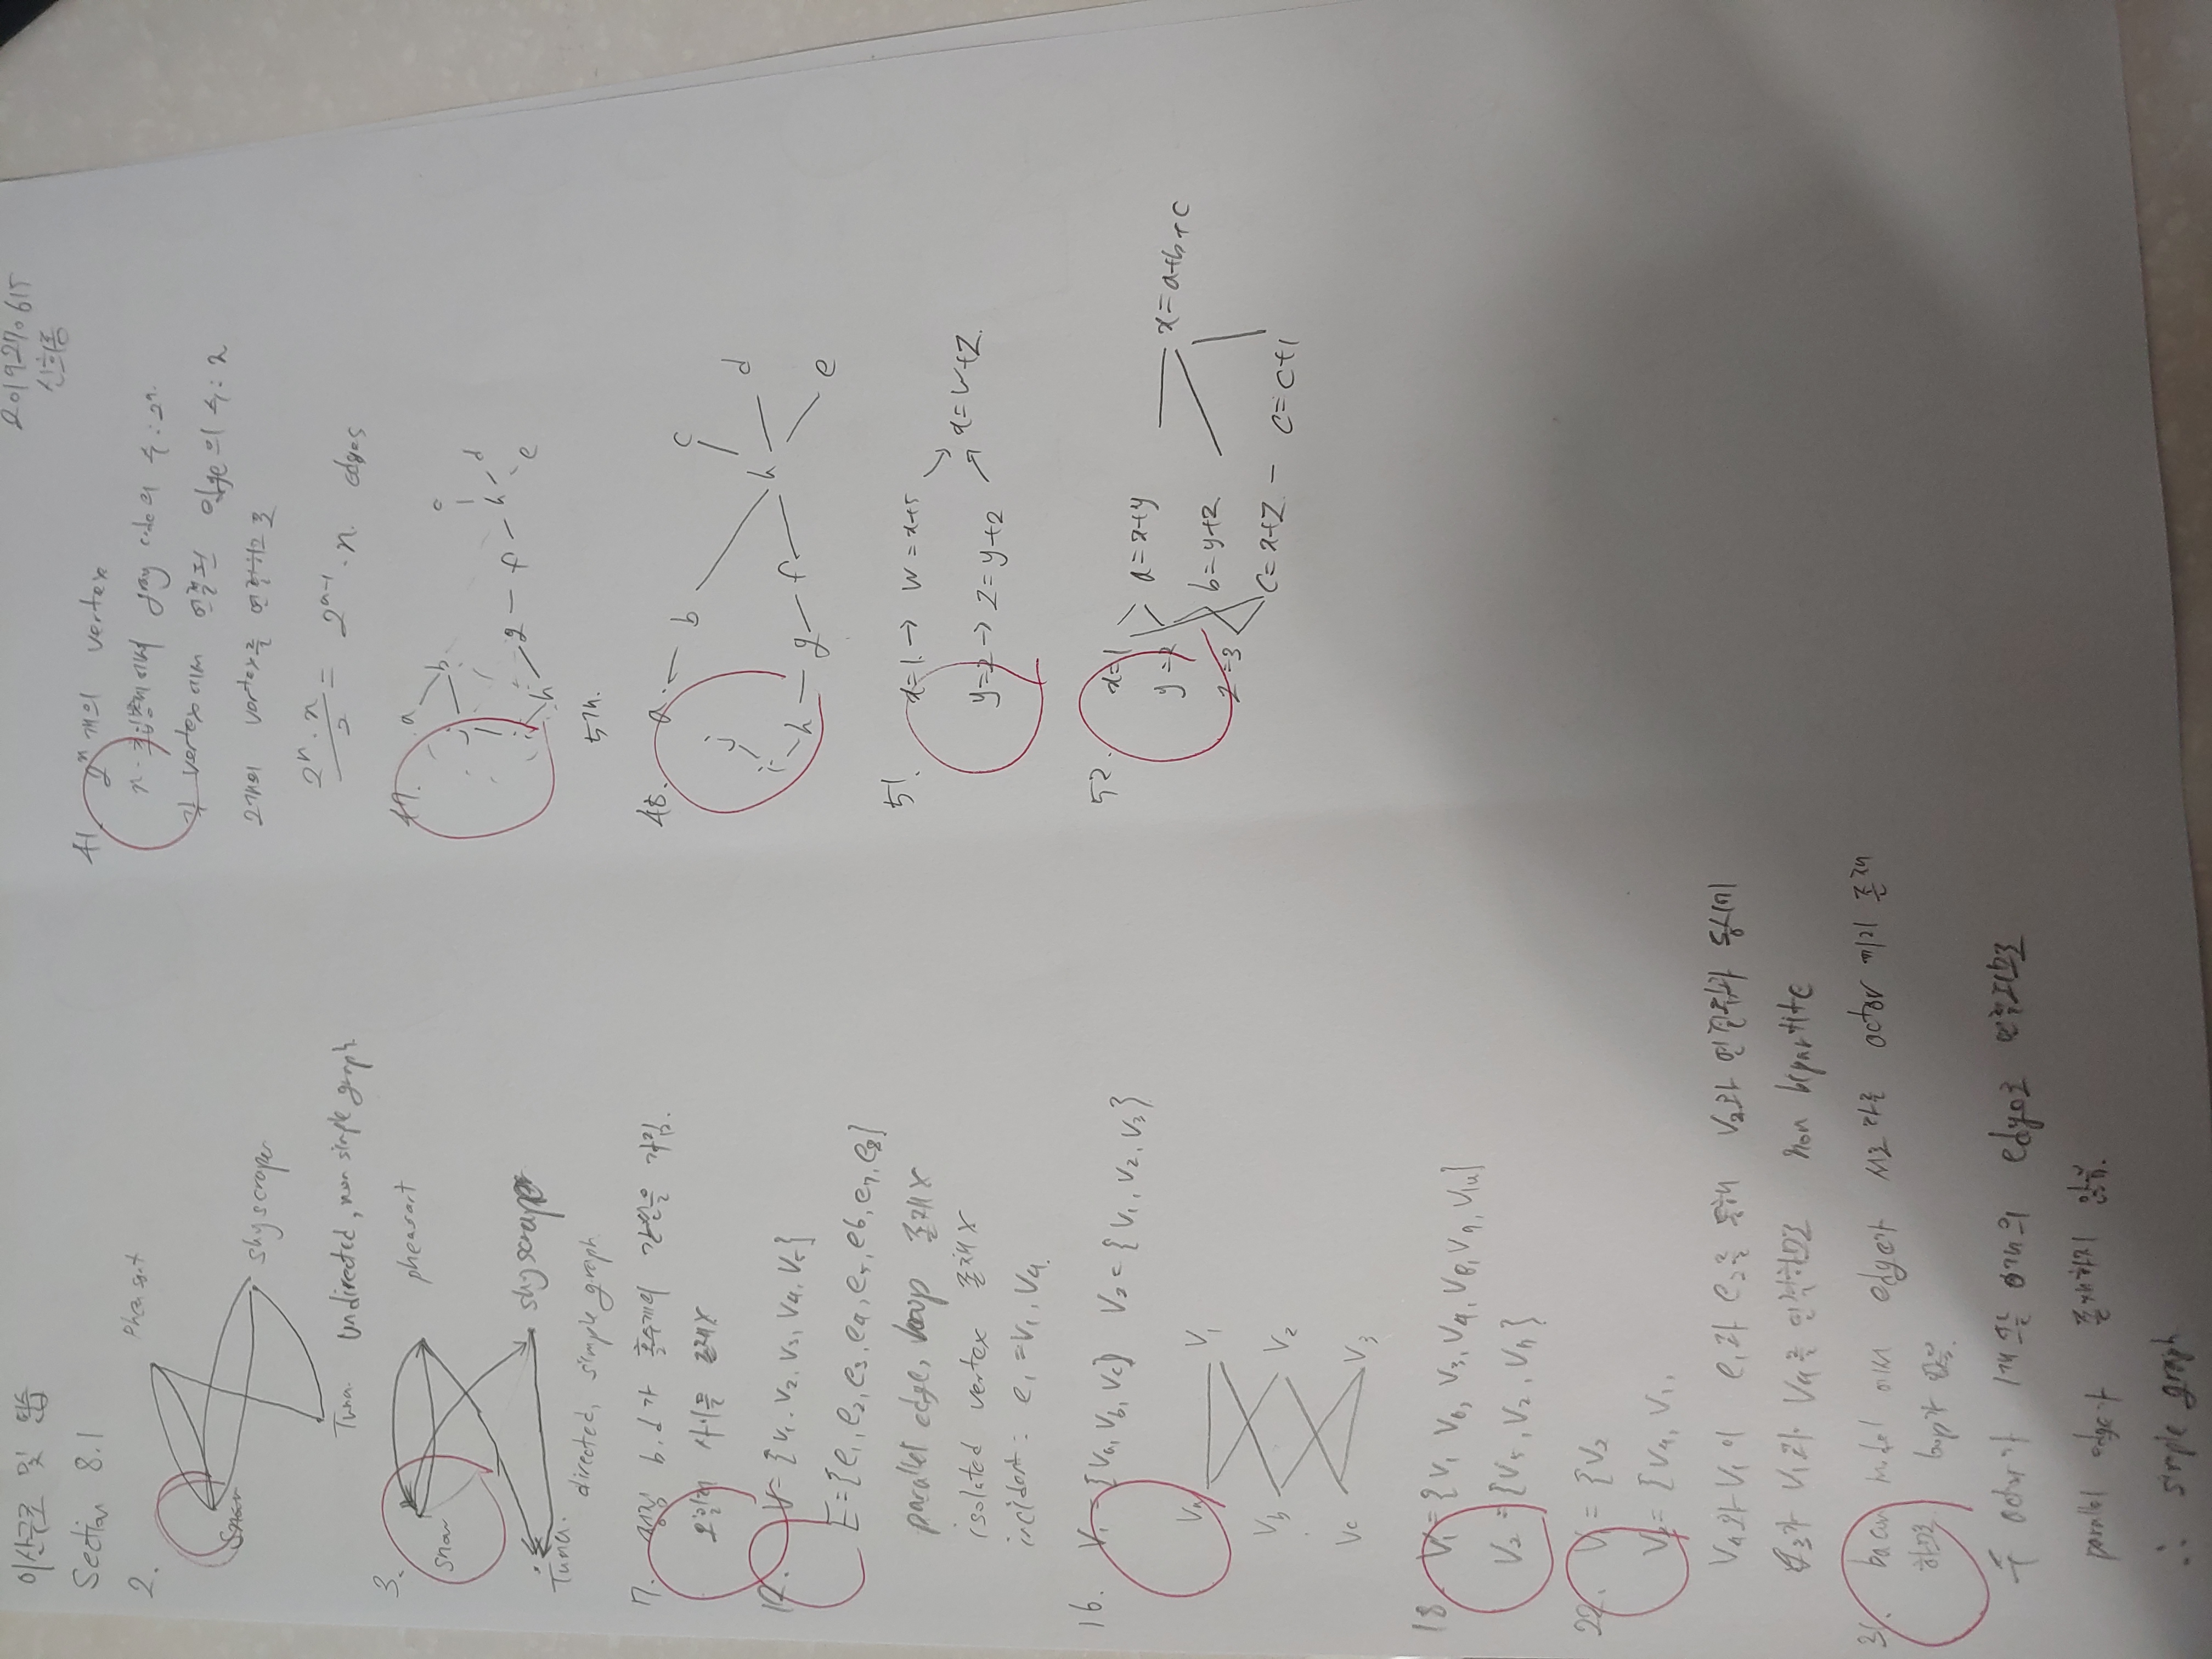 이산구조 및 연습
Section 8.1
2.
Pheasant
Snow
skyscraper
Tuna. undirected, non simple graph
3.
pheasant
snow
skyscraper
Tuna.
directed, simple graph
7. 정점 b, d가 홀수개의 간선을 가짐.
오일러 사이클 존재X
12. V = {v1, v2, v3, v4, v5}
E = {e1, e2, e3, e4, e5, e6, e7, e8}
parallel edge, loop 존재X
isolated vertex 존재X
incident: e1 = v1, v4.
16. V1 = {Va, Vb, Vc} V2 = {V1, V2, V3}
Va V1
Vb V2
Vc V3
18. V1 = {V1 V6, V3, V4, V8, V9, V10}
V2 = {V5, V2, V7}
22. V1 = {V2
V2 = {V4, V1,
V4와 V1이 e1과 e2를 통해 V2와 연결됨과 동시에
가 V1과 V4를 연결하므로 non bipartite
31. bacon model 에서 edge가 서로 다른 actor 끼리 존재
하므로 loop가 없음.
두 actor가 1개 또는 0개의 edge로 연결되므로
parallel edge가 존재하지 않음.
∴ simple graph
2019270615
신희동
41. 2^n개의 vertex
n- 에서 gray code의 수: 2^n.
각 vertex에서 연결된 edge의 수: 2
2개의 vertex를 연결하므로
2^n · n / 2 = 2^n-1 · n. edges
47. a
b
j
c
d
i h g f k
e
5개.
48. a
b
c
j
d
k
i
h g f
e
51. x=1. → w = x+5
x=w+z.
y=2 → z = y+2
52. x=1
a=x+y
y=2
x=a+b+c
b=y+z
z=3
c=x+z. c=c+1